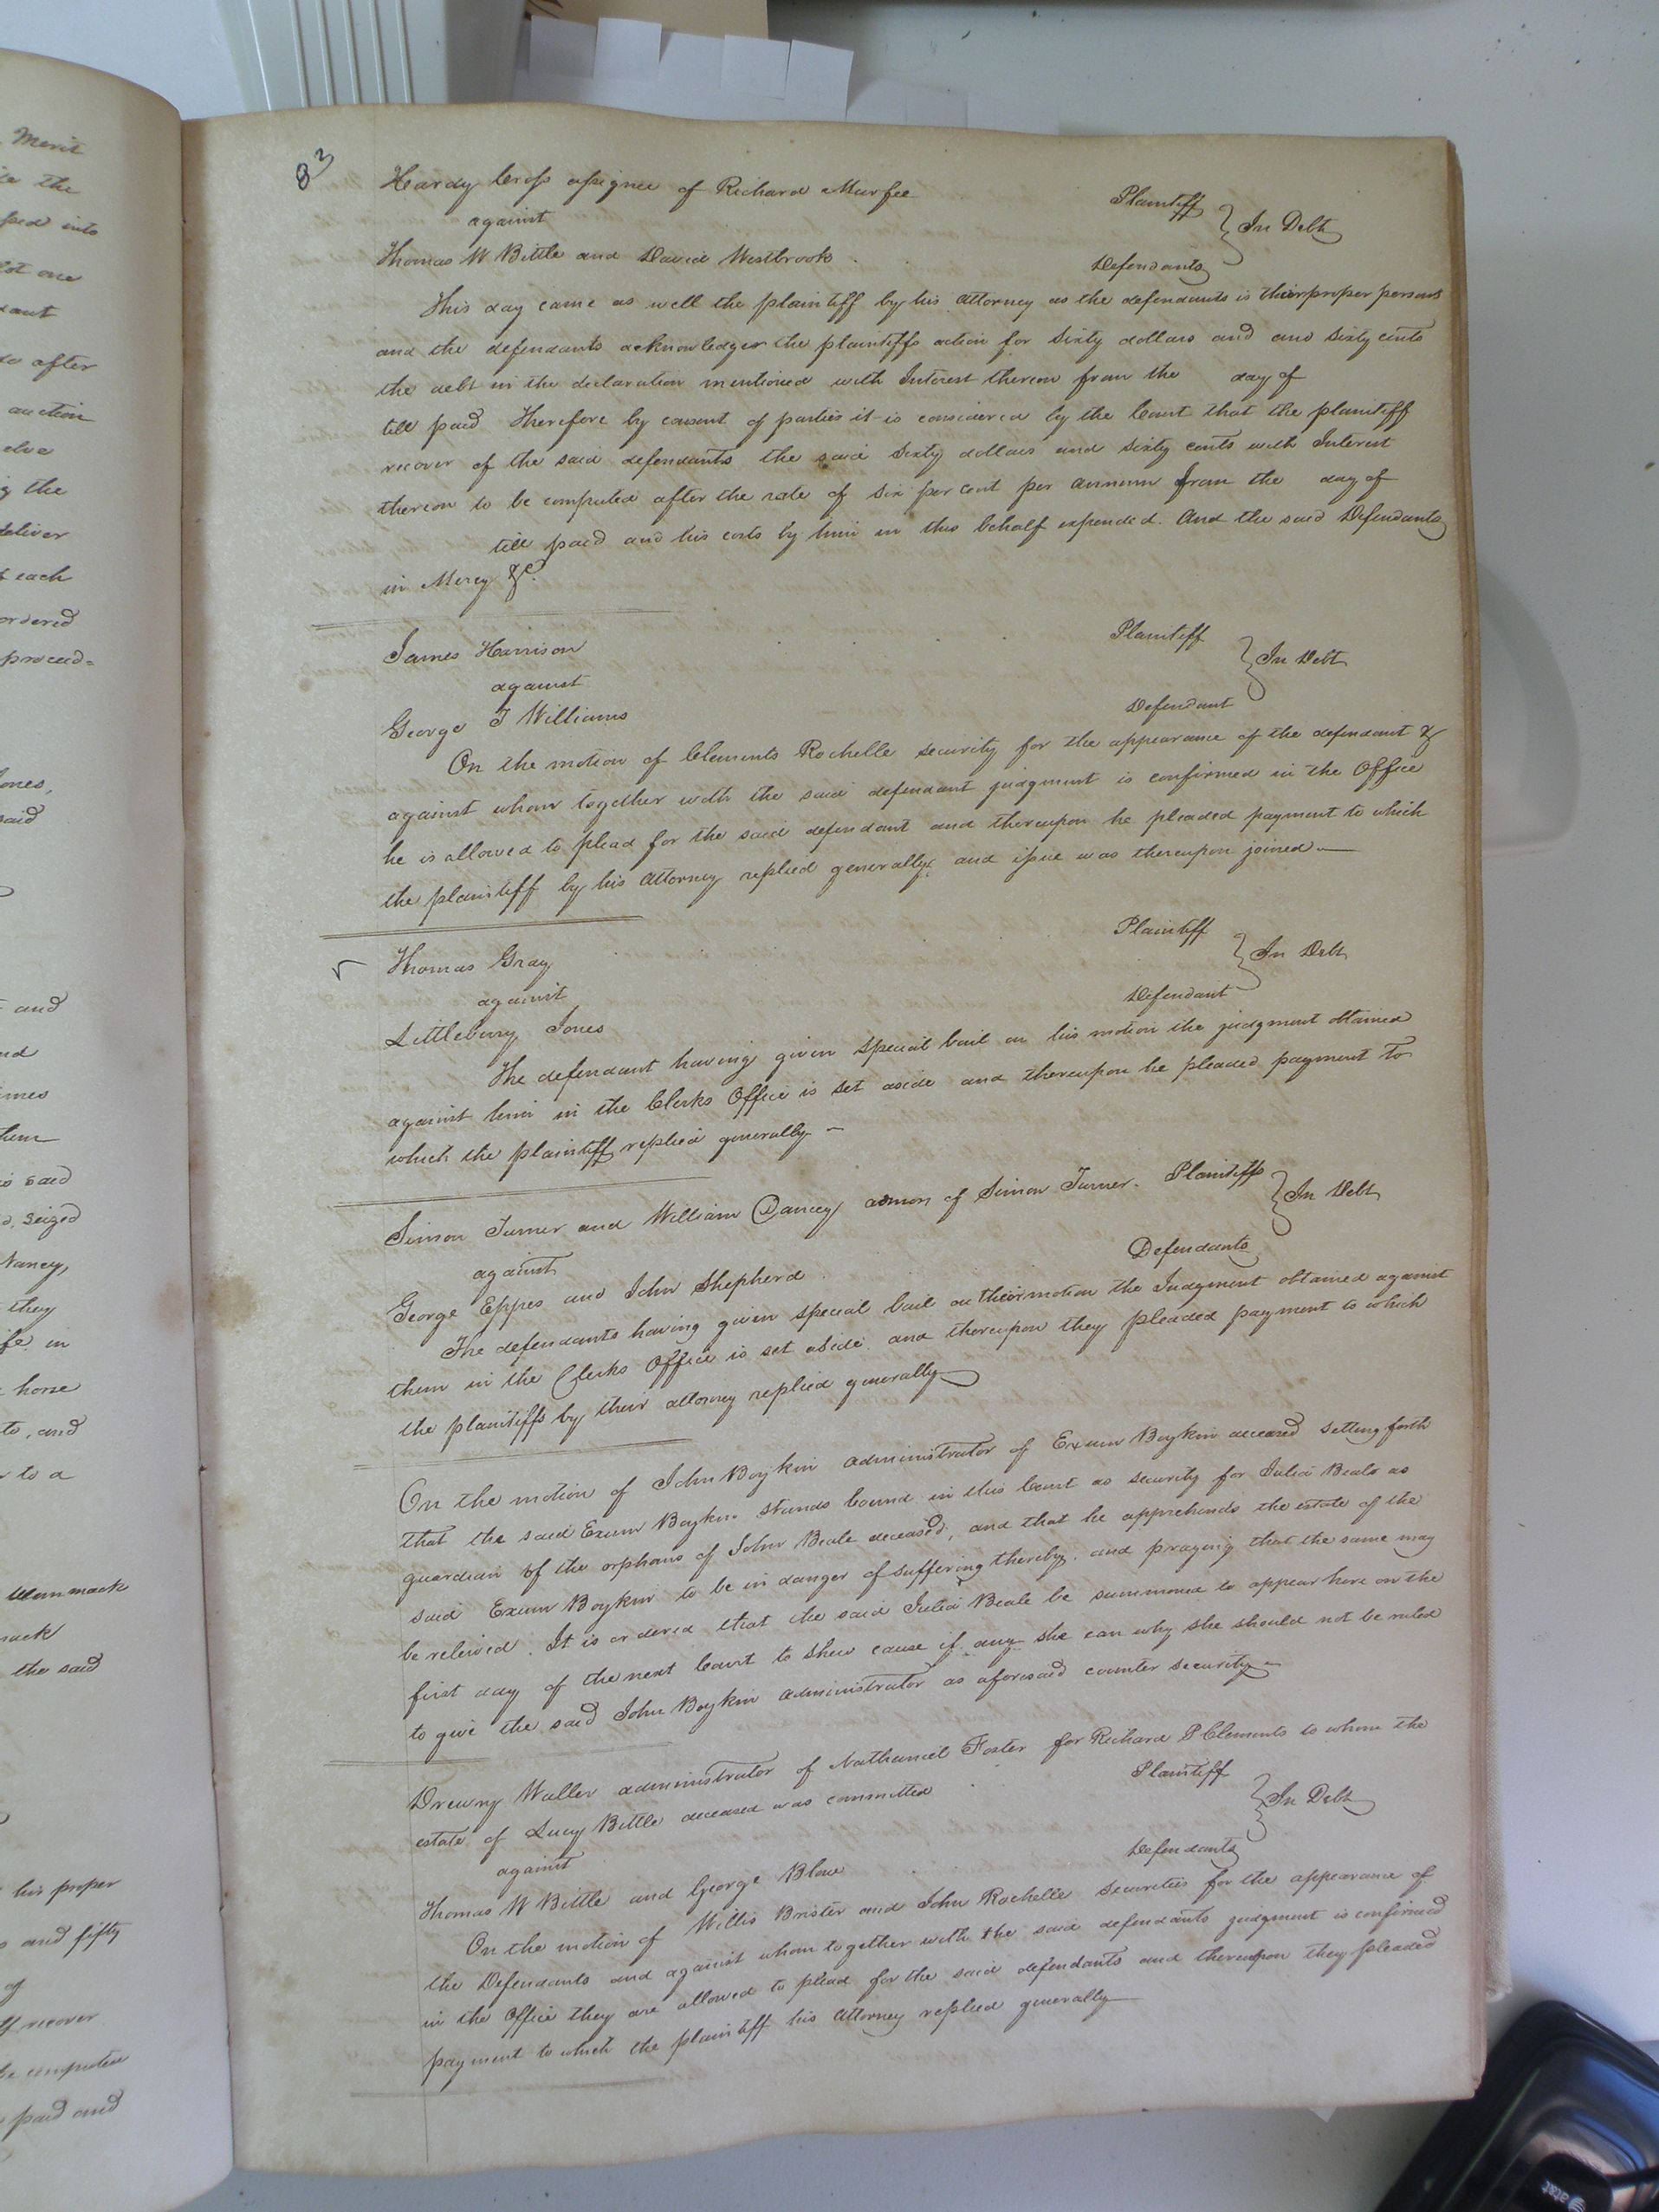 Merit
the
into
lot one
dant
to after
auction
the
deliver
each
ordered
proceed=
Jones,
said
and
them
said
seized
Nancy,
they
in
horse
to, and
to a
Wommack
the said
his proper
and fifty
of
recover
computed
paid and
83
Hardy Cross assignee of Richard Murfee Plaintiff
against } In Debt
Thomas W Bittle and David Westbrook . Defendants
This day came as well the plaintiff by his attorney as the defendants is their proper persons
and the defendants acknowledges the plaintiffs action for Sixty dollars and and sixty cents
the debt in the declaration mentioned with Interest thereon from the day of
till paid Therefore by consent of parties it is considered by the Court that the plaintiff
recover of the said defendants the said Sixty dollars and Sixty cents with Interest
thereon to be computed after the rate of six per cent per annum from the day of
till paid and his costs by him in this behalf expended. And the said Defendants
in Mercy &c.
James Harrison Plaintiff
against } In Debt
George T Williams Defendant
On the motion of Clements Rochelle security for the appearance of the defendant &
against whom together with the said defendant judgment is confirmed in the Office
he is allowed to plead for the said defendant and thereupon he pleaded payment to which
the plaintiff by his attorney replied generally, and issue was thereupon joined —
Thomas Gray Plaintiff
against } In Debt
Littlebury Jones Defendant
The defendant having given special bail on his motion the judgment obtained
against him in the Clerks Office is set aside and thereupon he pleaded payment to
which the plaintiff replied generally —
Simon Turner and William Dancey admors of Simon Turner. Plaintiffs
against } In Debt
George Eppes and John Shepherd . Defendants
The defendants having given special bail on their motion the Judgment obtained against
them in the Clerks Office is set aside. and thereupon they pleaded payment to which
the plaintiffs by their attorney replied generally
On the motion of John Boykin administrator of Exum Boykin deceased setting forth
that the said Exum Boykin stands bound in this Court as security for Julia Beale as
guardian of the orphans of John Beale deceased, and that he apprehends the estate of the
said Exum Boykin to be in danger of suffering thereby. and praying that the same may
be releived. It is ordered that the said Julia Beale be summoned to appear here on the
first day of the next Court to shew cause if any she can why she should not be ruled
to give the said John Boykin administrator as aforesaid counter security —
Drewry Waller administrator of Nathaniel Foster for Richard P Clements to whom the
estate of Lucy Bittle deceased was committed Plaintiff
against } In Debt
Thomas W Bittle and George Blow Defendants
On the motion of Willis Brister and John Rochelle securities for the appearance of
the Defendants and against whom together with the said defendants judgment is confirmed
in the Office they are allowed to plead for the said defendants and thereupon they pleaded
payment to which the plaintiff his attorney replied generally
at&t